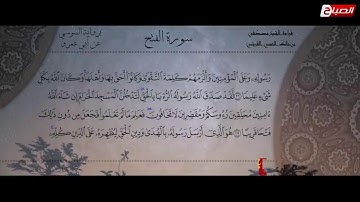 الصباح
سورة الفتح
رسوله وعلى المؤمنين وألزمهم كلمة التقوى وكانوا أحق بها وأهلها وكان الله بكل
شيء عليما لقد صدق الله رسوله الرؤيا بالحق لتدخلن المسجد الحرام إن شاء الله
ءامنين محلقين رءوسكم ومقصرين لا تخافون فعلم ما لم تعلموا فجعل من دون ذلك
فتحا قريبا هو الذي أرسل رسوله بالهدى ودين الحق ليظهره على الدين كله